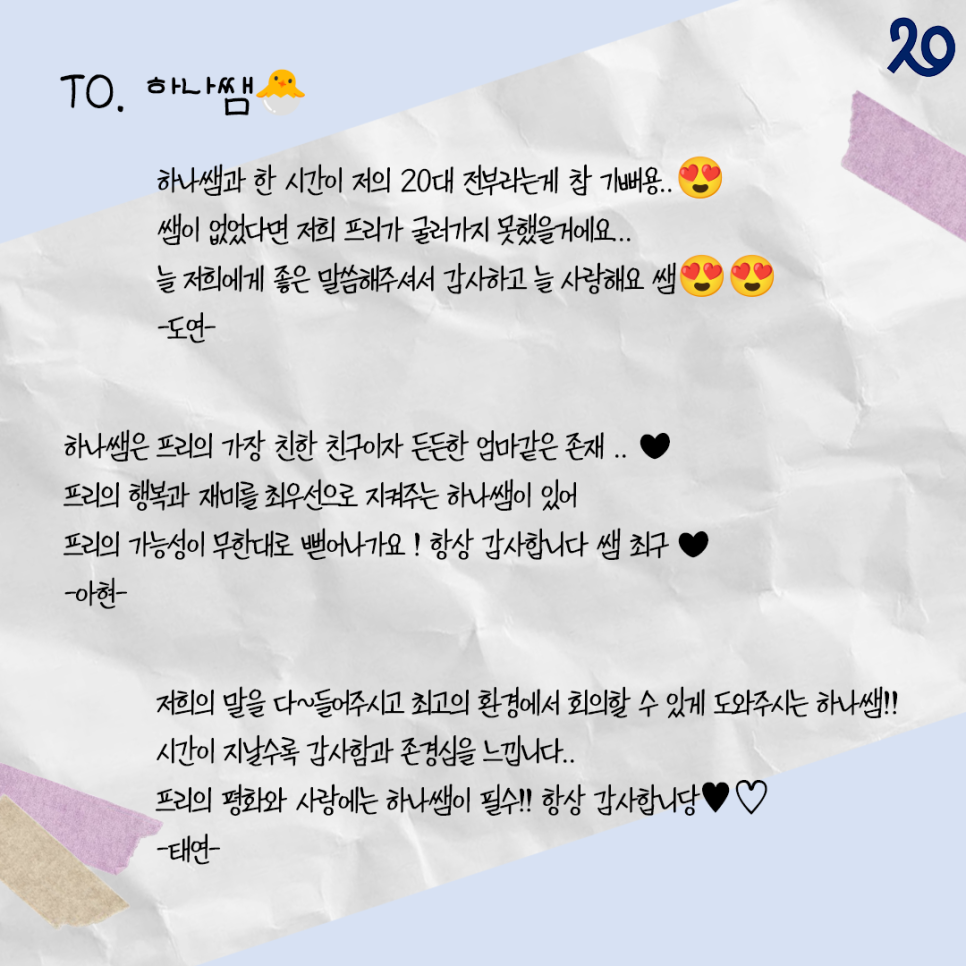 20
TO. 하나쌤🐣
하나쌤과 한 시간이 저의 20대 전부라는게 참 기뻐용..😍
쌤이 없었다면 저희 프리가 굴러가지 못했을거에요...
늘 저희에게 좋은 말씀해주셔서 감사하고 늘 사랑해요 쌤😍😍
-도연-
하나쌤은 프리의 가장 친한 친구이자 든든한 엄마같은 존재 .. ♥
프리의 행복과 재미를 최우선으로 지켜주는 하나쌤이 있어
프리의 가능성이 무한대로 뻗어나가요 ! 항상 감사합니다 쌤 최구 ♥
-아현-
저희의 말을 다~들어주시고 최고의 환경에서 회의할 수 있게 도와주시는 하나쌤!!
시간이 지날수록 감사함과 존경심을 느낍니다..
프리의 평화와 사랑에는 하나쌤이 필수!! 항상 감사합니당♥♡
-태연-